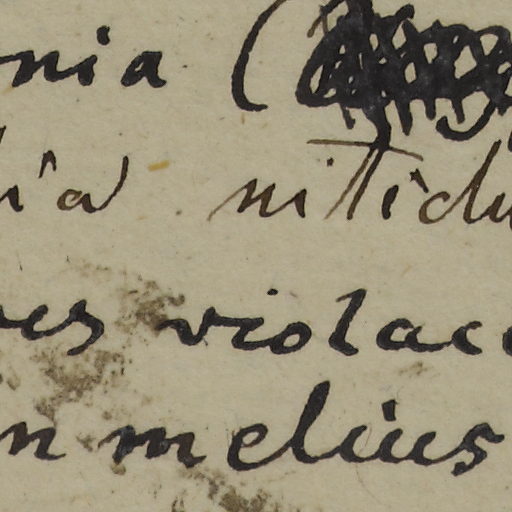 nia (
ia nitidu
es violace
n melius